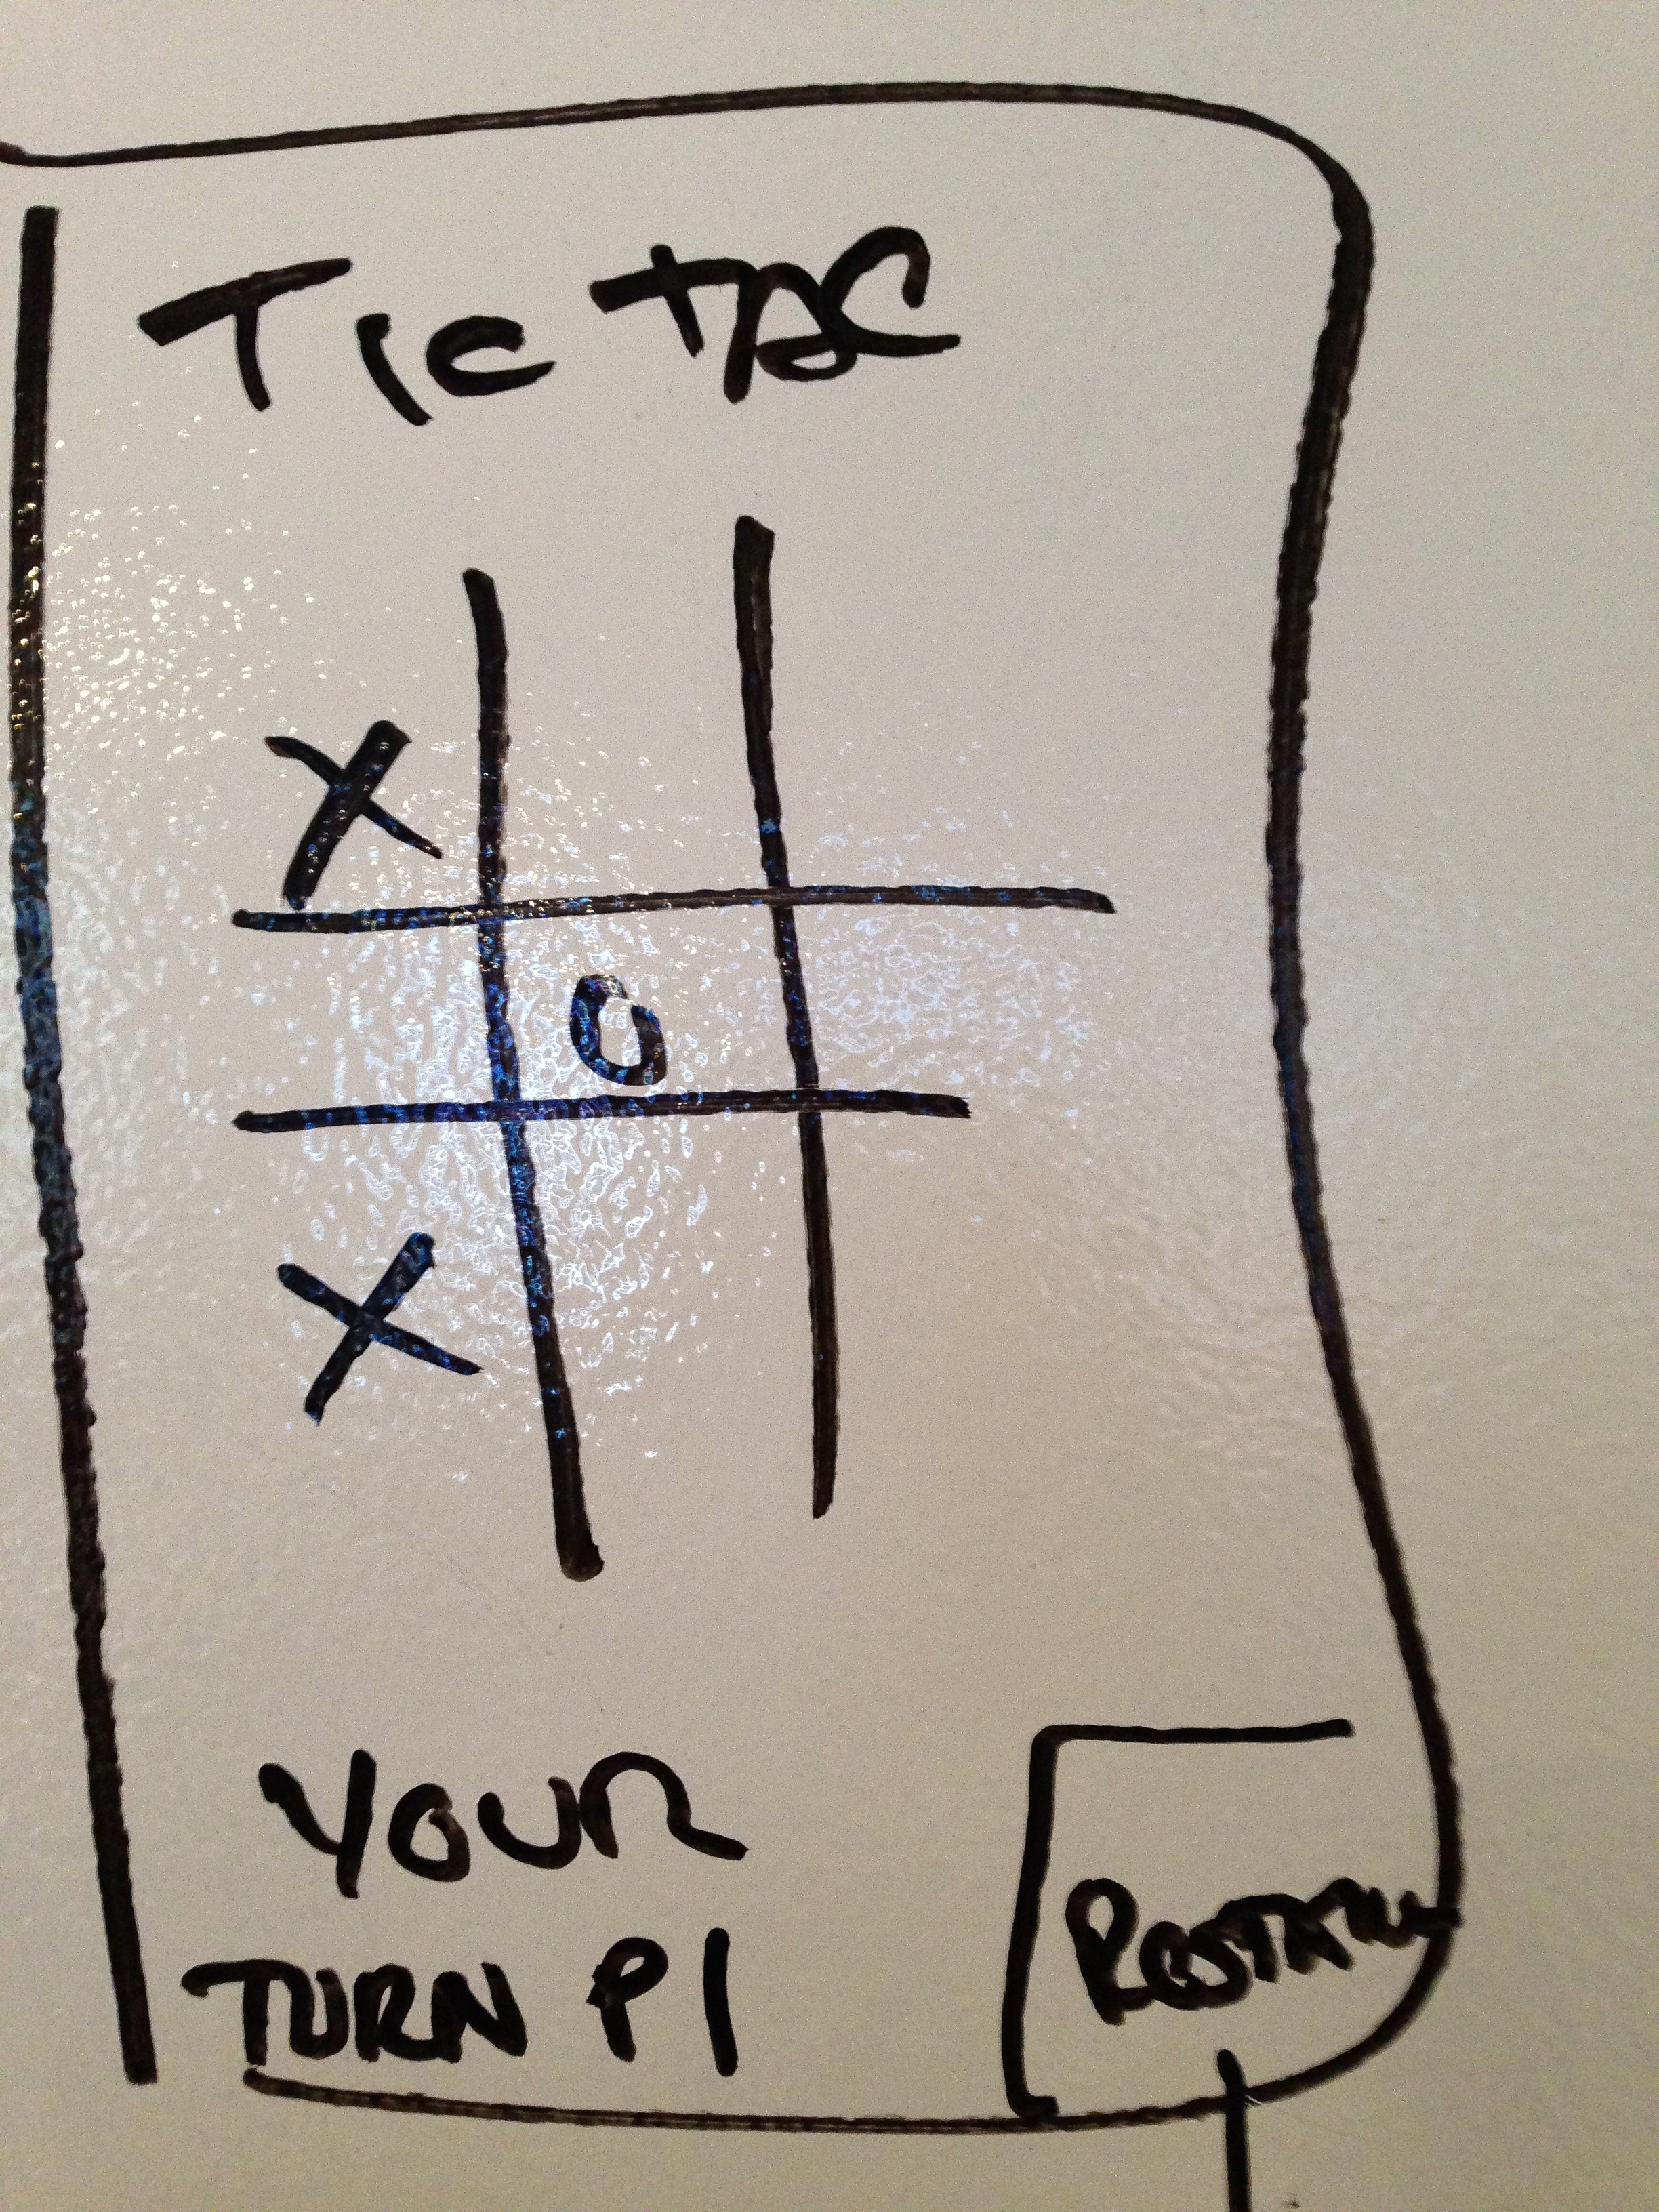 TIC TAC
X
O
X
YOUR
TURN P1
RESTART